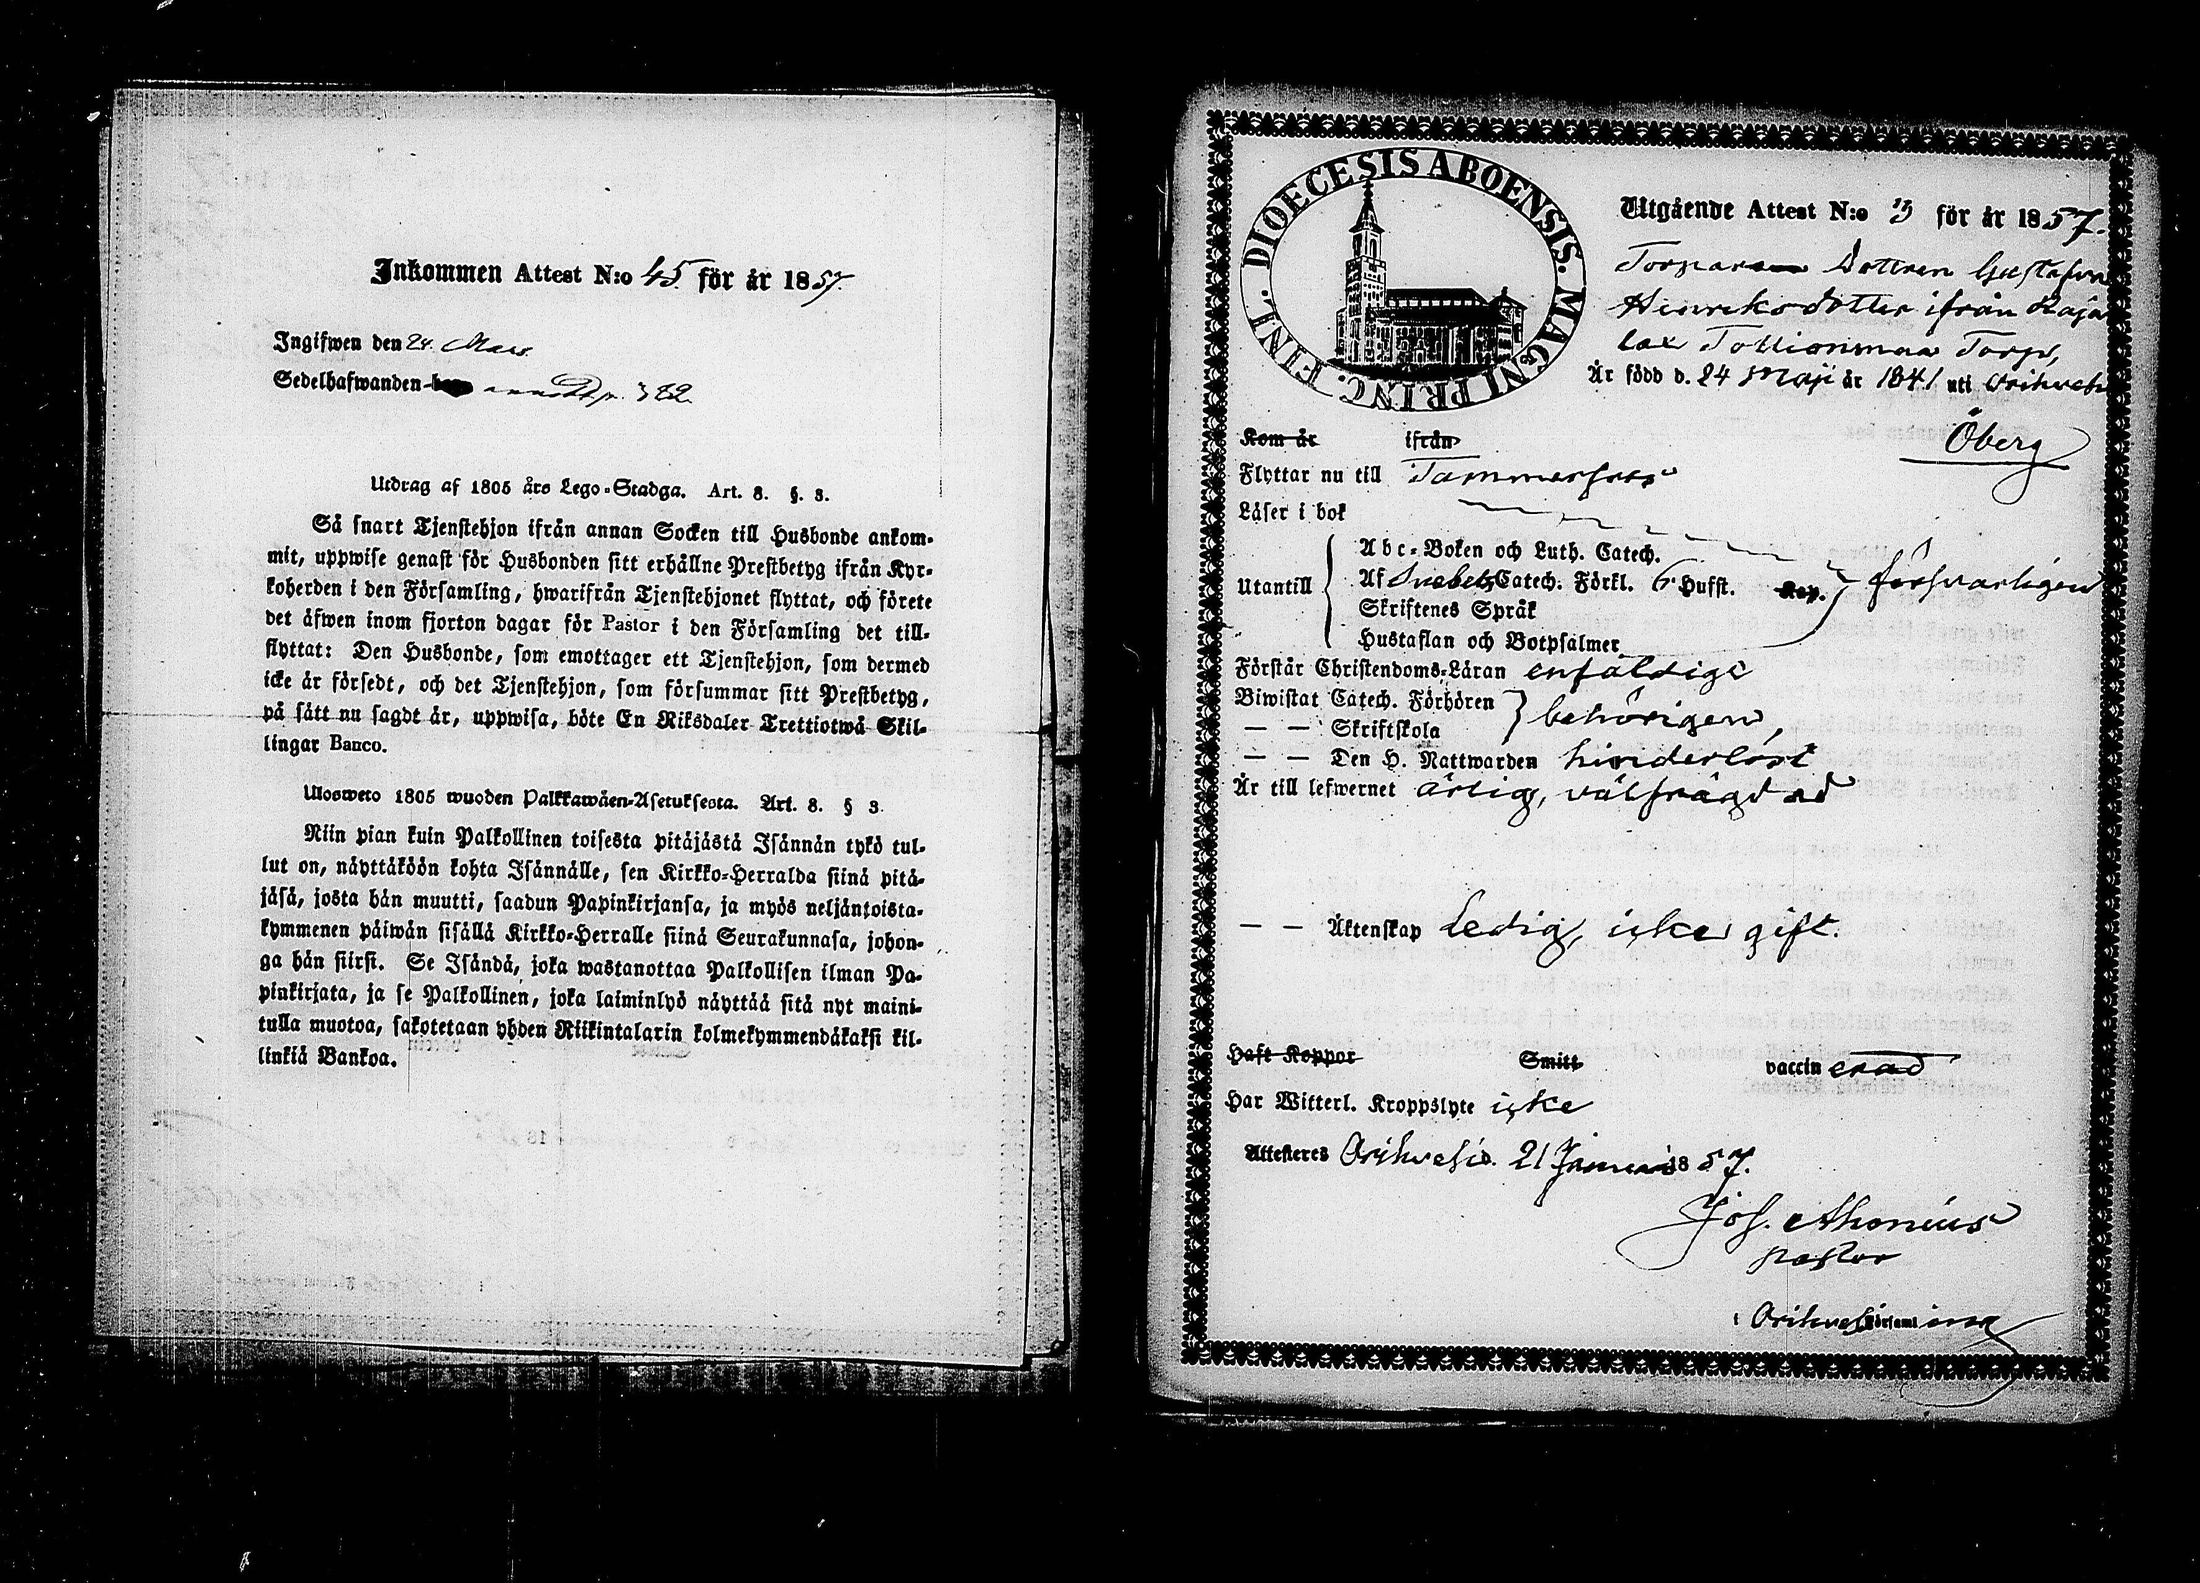 Inkommen Attest N:o 45 för år 1857.
Ingifwen den 24. Mars.
Sedelhafwanden 382.
Utdrag af 1805 års Lego-Stadga. Art. 8. §. 3.
Så snart Tjenstehjon ifrån annan Socken till Husbonde ankom-
mit, uppwise genast för Husbonden sitt erhållne Prestbetyg ifrån Kyr-
koherden i den Församling, hwarifrån Tjenstehjonet flyttat, och förete
det äfwen inom fjorton dagar för Pastor i den Församling det till-
flyttat: Den Husbonde, som emottager ett Tjenstehjon, som dermed
icke är försedt, och det Tjenstehjon, som försummar sitt Prestbetyg,
på sätt nu sagdt är, uppwisa, böte En Riksdaler Trettiotwå Skil-
lingar Banco.
Ulosweto 1805 wuoden Palkkawäen-Asetuksesta. Art. 8. § 3.
Niin pian kuin Palkollinen toisesta pitäjästä Isännän tykö tul-
lut on, näyttäköön kohta Isännälle, sen Kirkko-Herralda siinä pitä-
jäsä, josta hän muutti, saadun Papinkirjansa, ja myös neljäntoista-
kymmenen päiwän sisällä Kirkko-Herralle siinä Seurakunnasa, johon-
ga hän siirsi. Se Isändä, joka wastanottaa Palkollisen ilman Pa-
pinkirjata, ja se Palkollinen, joka laiminlyö näyttää sitä nyt maini-
tulla muotoa, sakotetaan yhden Riikintalarin kolmekymmendäkaksi kil-
linkiä Bankoa.
DIOECESIS ABOENSIS. MAGNI PRINC. FINL.
Utgående Attest N:o 3 för år 1857.
Torpare Dottren Gustafva
Henriksdotter ifrån Raja
lax Torp,
Är född d. 24 Maji år 1841 uti Orihvesi
Öberg
Kom år ifrån
Flyttar nu till Tammerfors
Läser i bok
Utantill
Abc-Boken och Luth. Catech.
Af Svebelii Catech. Förkl. 6 Hufst. Kap. försvarligen
Skriftenes Språk
Hustaflan och Botpsalmer
Förstår Christendoms-Läran enfäldigt
Biwistat Catech. Förhören
— — Skriftskola behörigen,
— — Den H. Nattwarden hinderlöst
Är till lefwernet ärlig, välfrägdad
— — Äktenskap Ledig, icke gift.
Haft Koppor Smitt vaccinerad
Har Witterl. Kroppslyte icke
Attesteres Orihvesi d. 21 Januari 1857.
Jos. Ahonius
Pastor
i Orihvesi Församling